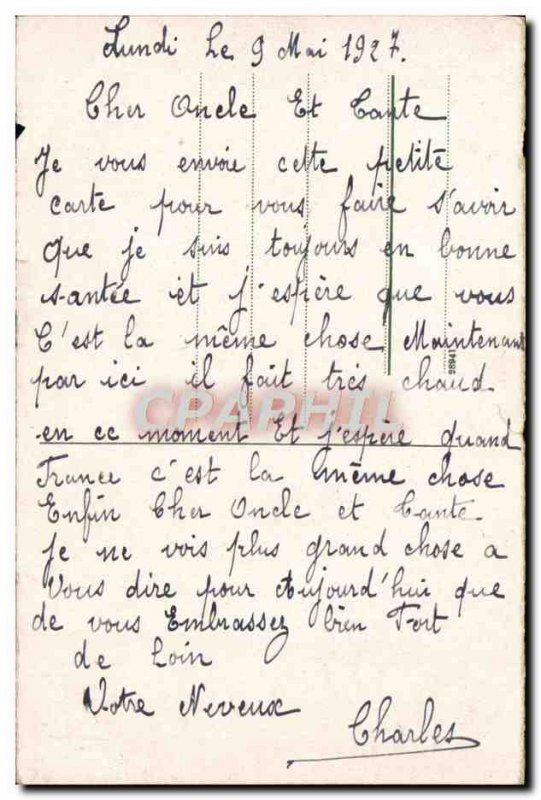 Lundi Le 9 Mai 1927.
Cher Oncle Et Tante
Je vous envoie cette petite
carte pour vous faire s'avoir
que je suis toujours en bonne
s-antée et j'espère que vous
C'est la même chose Maintenant
par ici il fait très chaud
en ce moment Et j'espère quand
France c'est la même chose
Enfin Cher Oncle et Tante
je ne vois plus grand chose a
Vous dire pour Aujourd'hui que
de vous Embrassez bien Fort
de Loin
Votre Neveux
Charles
28941
CPAPHIL